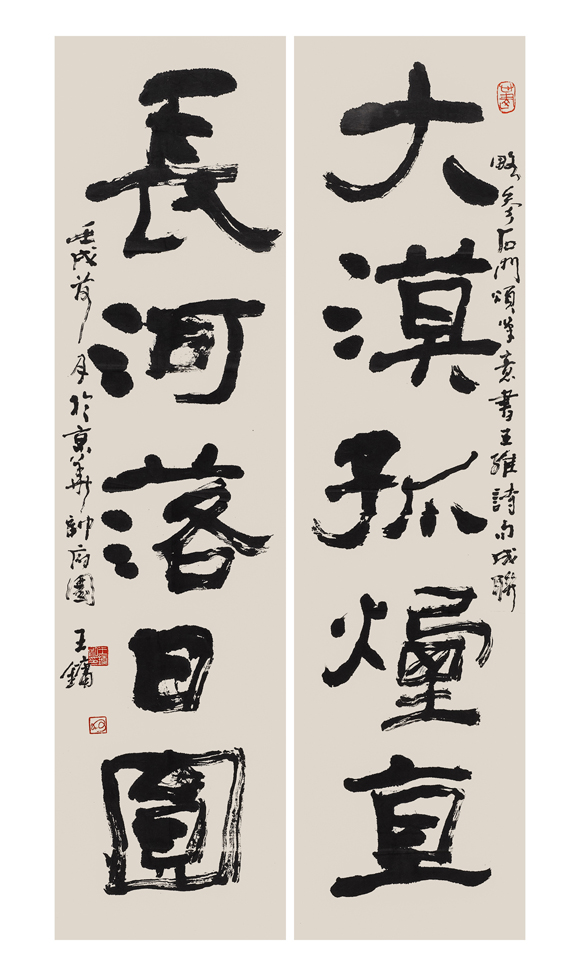 大漠孤煙直
略參石門頌筆意書王維詩句成聯
長河落日圓
壬戌荷月於京華帥府園
王鏞